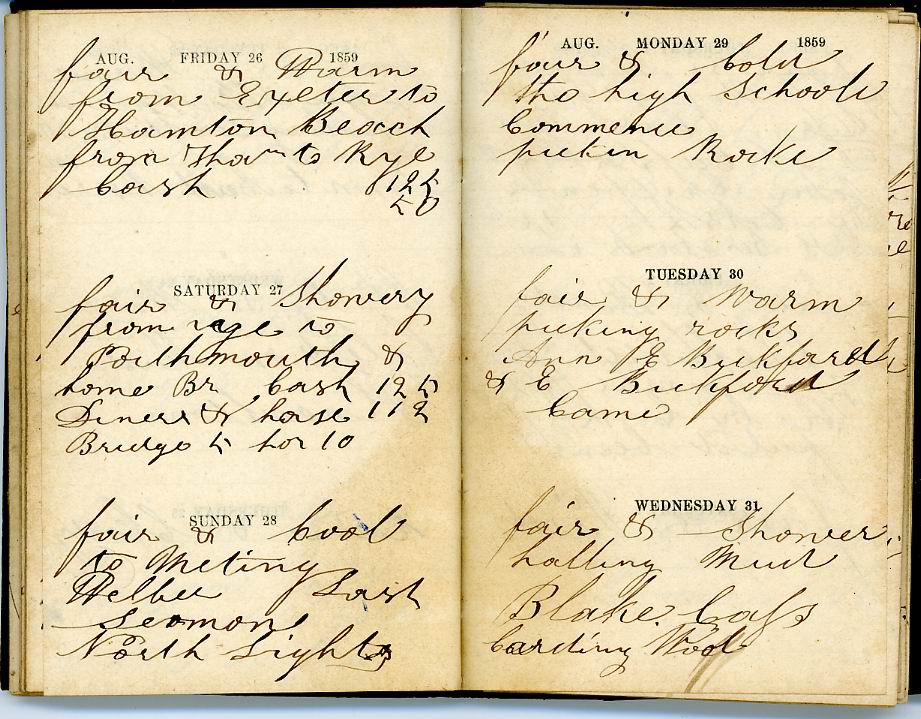 AUG. FRIDAY 26 1859
fair & Warm
from Exeter to
Hamton Beach
from Ham to Rye
Cash 125
50
SATURDAY 27
fair & Showery
from rye to
Porthmouth &
home Br, Cash 125
Diner & horse 112
Bridge 5 hor 10
SUNDAY 28
fair & Cool
to Meting
Last
Seomons
North Lights
AUG. MONDAY 29 1859
fair & Cold
the high Schools
Commence
pickin Rocks
TUESDAY 30
fair & Warm
picking rocks
Ann E Bickford
& E Bickford
Came
WEDNESDAY 31
fair & Shower
halling Mud
Blake. Cass
Carding Wool